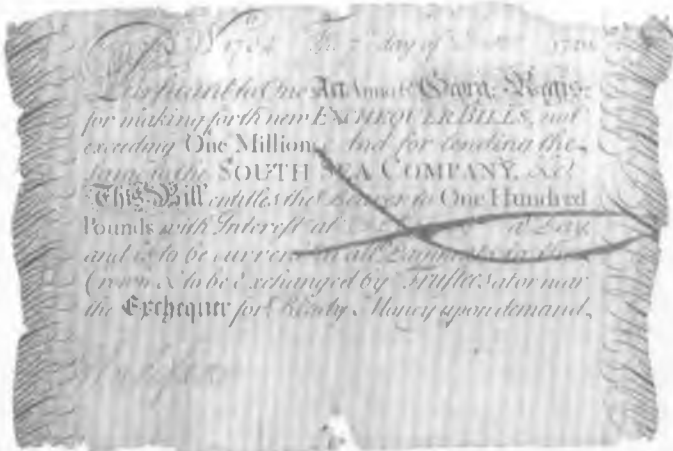 1704 The 7 day of 1720
Pursuant to One Act Anno Georg: Regis:
for making forth new EXCHEQUER BILLS, not
exceeding One Million And for lending the
same to the SOUTH SEA COMPANY, &c.
This Bill entitles the Bearer to One Hundred
Pounds with Interest at a Day,
and is to be current in all Payments in the
Crown & to be Exchanged by Trustees at or near
the Exchequer for Ready Money upon demand.